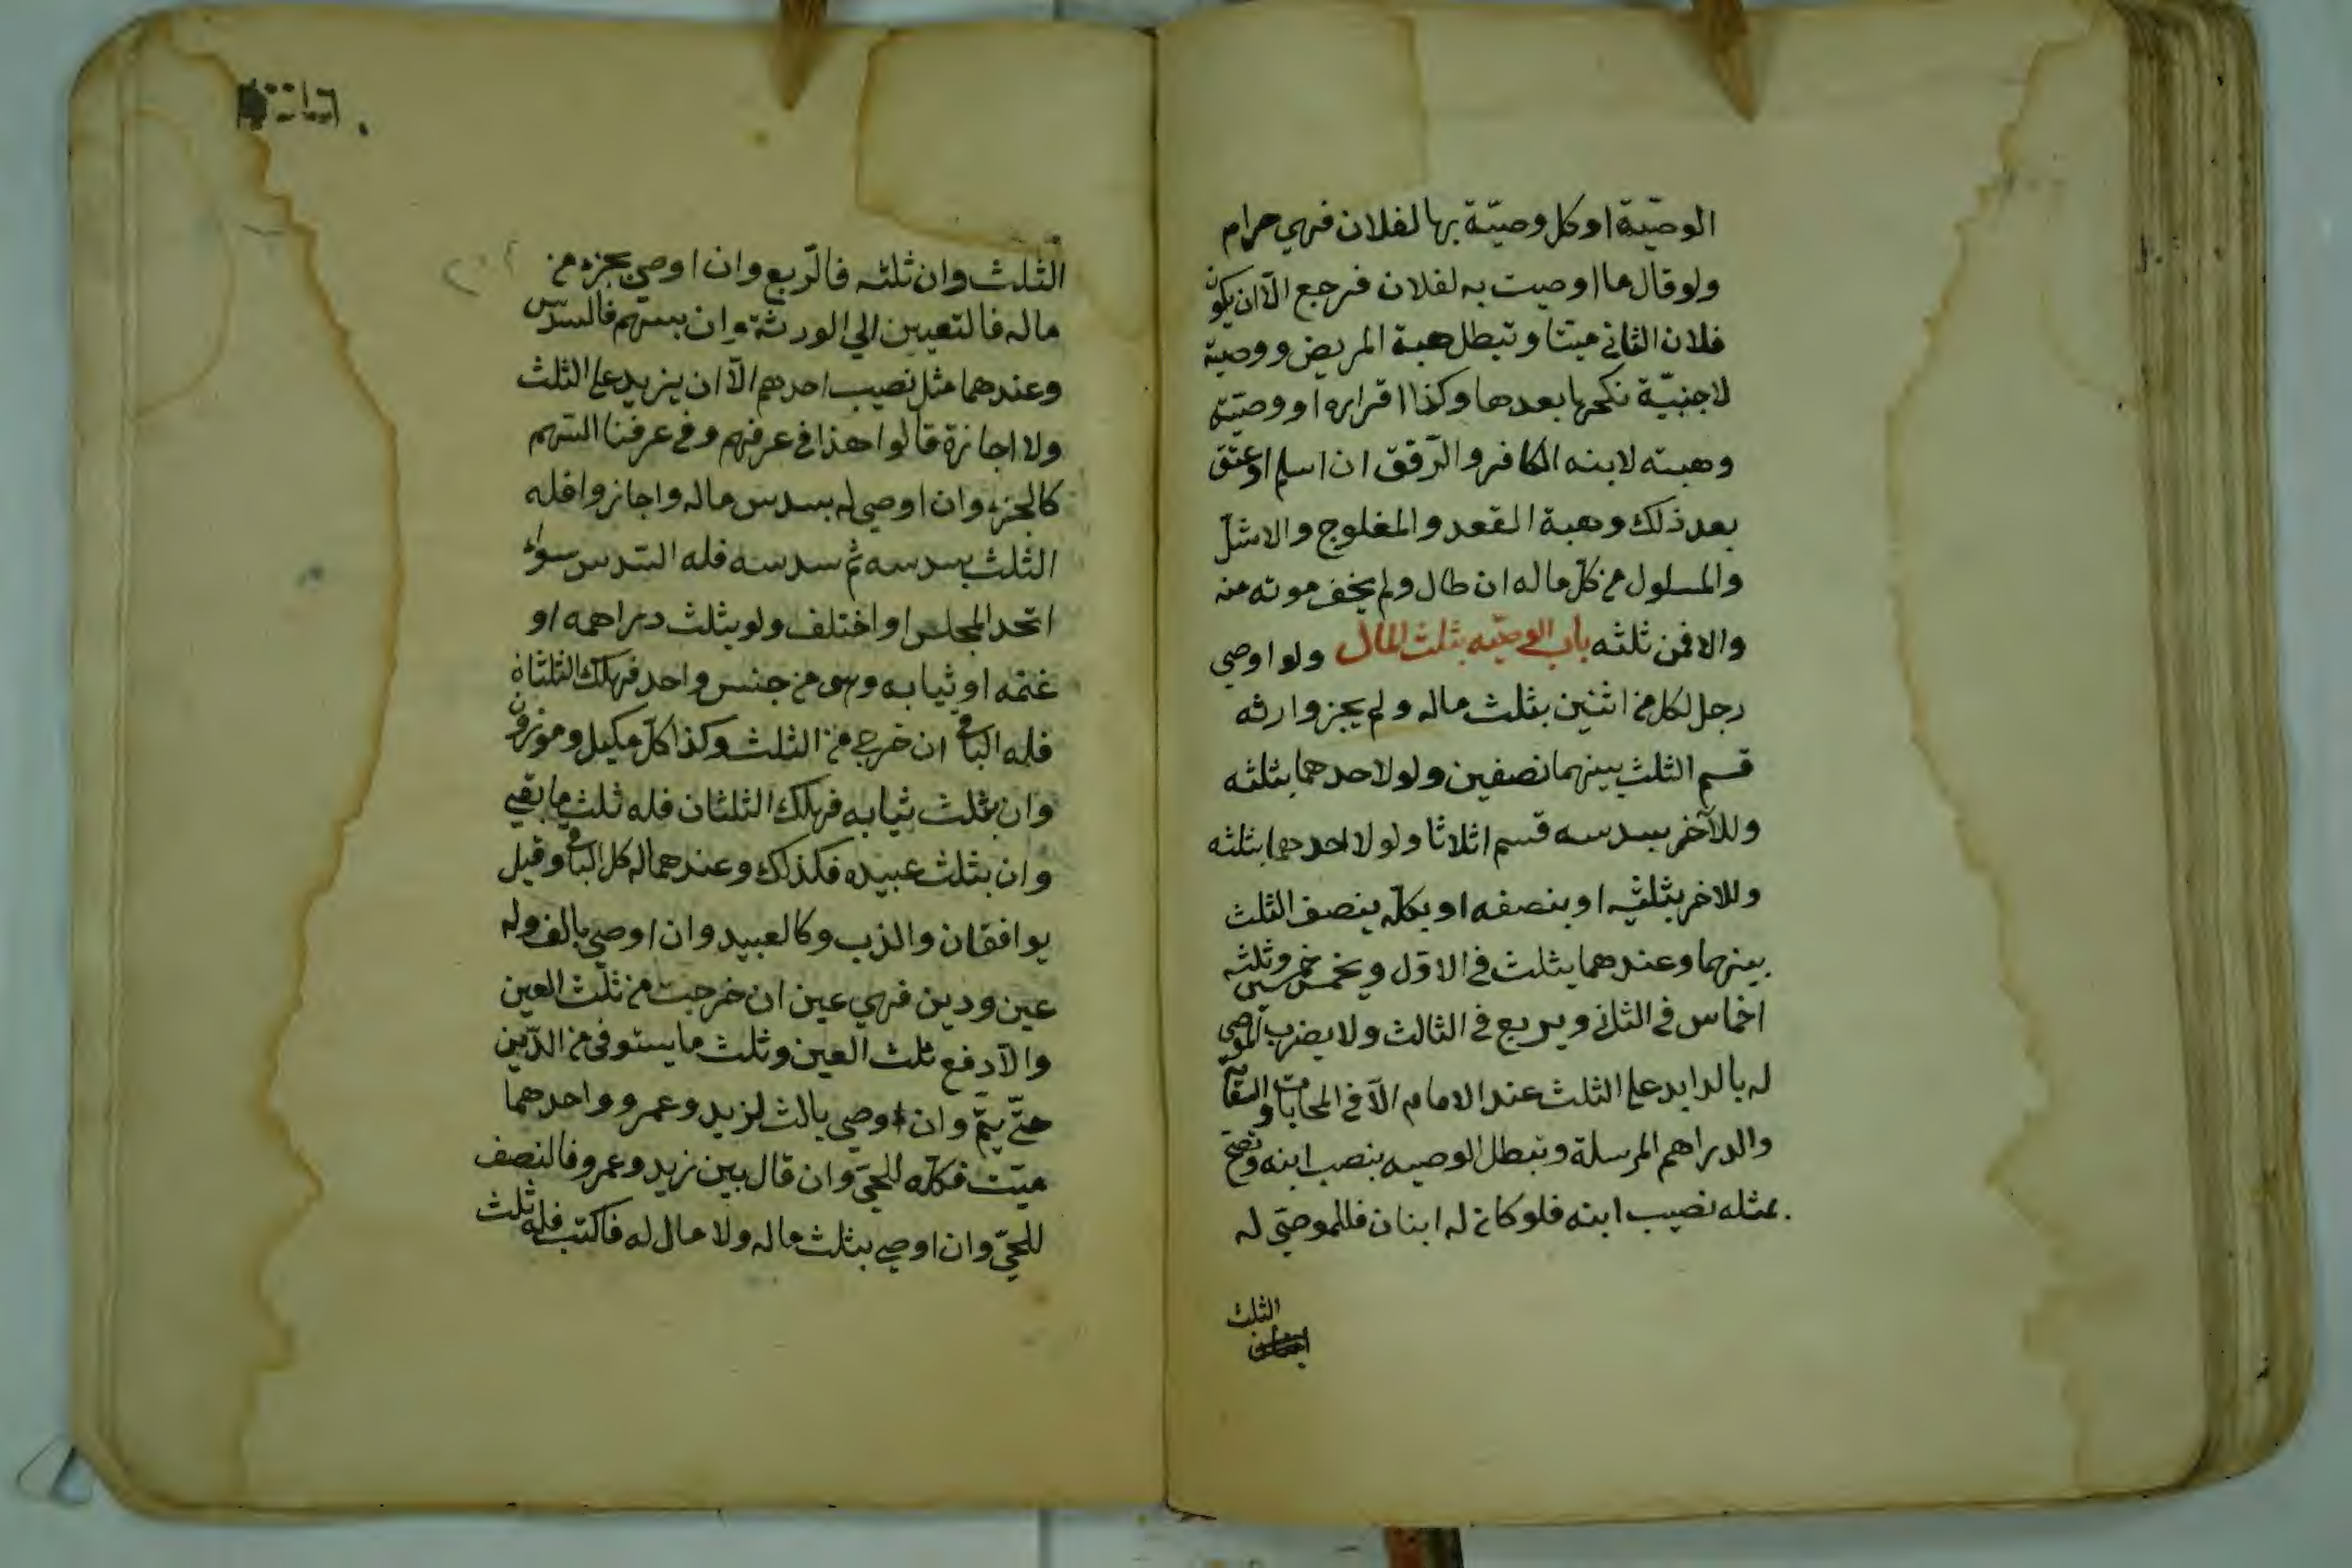 الوصيّة او كل وصيّة بها لفلان فهي حرام
ولو قال ما اوصيت به لفلان فرجع الّا ان يكون
فلان الثاني ميتا و تبطل هبة المريض ووصية
لاجنبيّة نكحها بعدها وكذا اقراره او وصيّته
وهبته لابنه الكافر و الرّقيق ان اسلم او عتق
بعد ذلك وهبة المقعد والمفلوج والاشلّ
والمسلول من كلّ ماله ان طال ولم يخف موته منه
والا فمن ثلثه باب الوصيّه بثلث المال ولو اوصي
رجل لكل من اثنين بثلث ماله ولم يجز وارثه
قسم الثلث بينهما نصفين ولو لاحدهما بثلثه
وللآخر بسدسه قسم اثلاثا ولو لاحدهما بثلثه
وللاخر بثلثيه او بنصفه او بكلّه ينصف الثلث
بينهما وعندهما يثلث في الاوّل ويخمس خمسين وثلثه
اخماس في الثاني ويربع في الثالث ولا يضرب الموصي
له بالزايد علي الثلث عند الامام الّا في المحابات والسقاية
والدراهم المرسلة وتبطل الوصيه بنصيب ابنه وتصح
بمثله نصيب ابنه فلو كان له ابنان فللموصي له
الثلث
الثلث وان ثلثه فالرّبع وان اوصي بجزء من
ماله فالتعيين الي الورثة وان بسهم فالسدس
وعندهما مثل نصيب احدهم الّا ان يزيد علي الثلث
ولا اجازة قالوا هذا في عرفهم وفي عرفنا السهم
كالجزء وان اوصي له بسدس ماله واجازوا فله
الثلث بسدسه ثم سدسه فله السّدس سواء
اتحد المجلس او اختلف ولو بثلث دراهمه او
غنمه او ثيابه وهي من جنس واحد فهلك الثلثان
فله الباقي ان خرج من الثلث وكذا كلّ مكيل وموزون
وان بثلث ثيابه فهلك الثلثان فله ثلث ما بقي
وان بثلث عبيده فكذلك وعندهما له كل الباقي وقيل
يوافقان والذب وكالعبيد وان اوصي بالف وله
عين ودين فهي عين ان خرجت من ثلث العين
والّا دفع ثلث العين وثلث ما يستوفي من الدّين
حتّي يتمّ وان اوصي بالث لزيد وعمرو واحدهما
ميّت فكلّه للحيّ وان قال بين زيد وعمرو فالنصف
للحيّ وان اوصي بثلث ماله ولا مال له فاكتسب فله ثلث